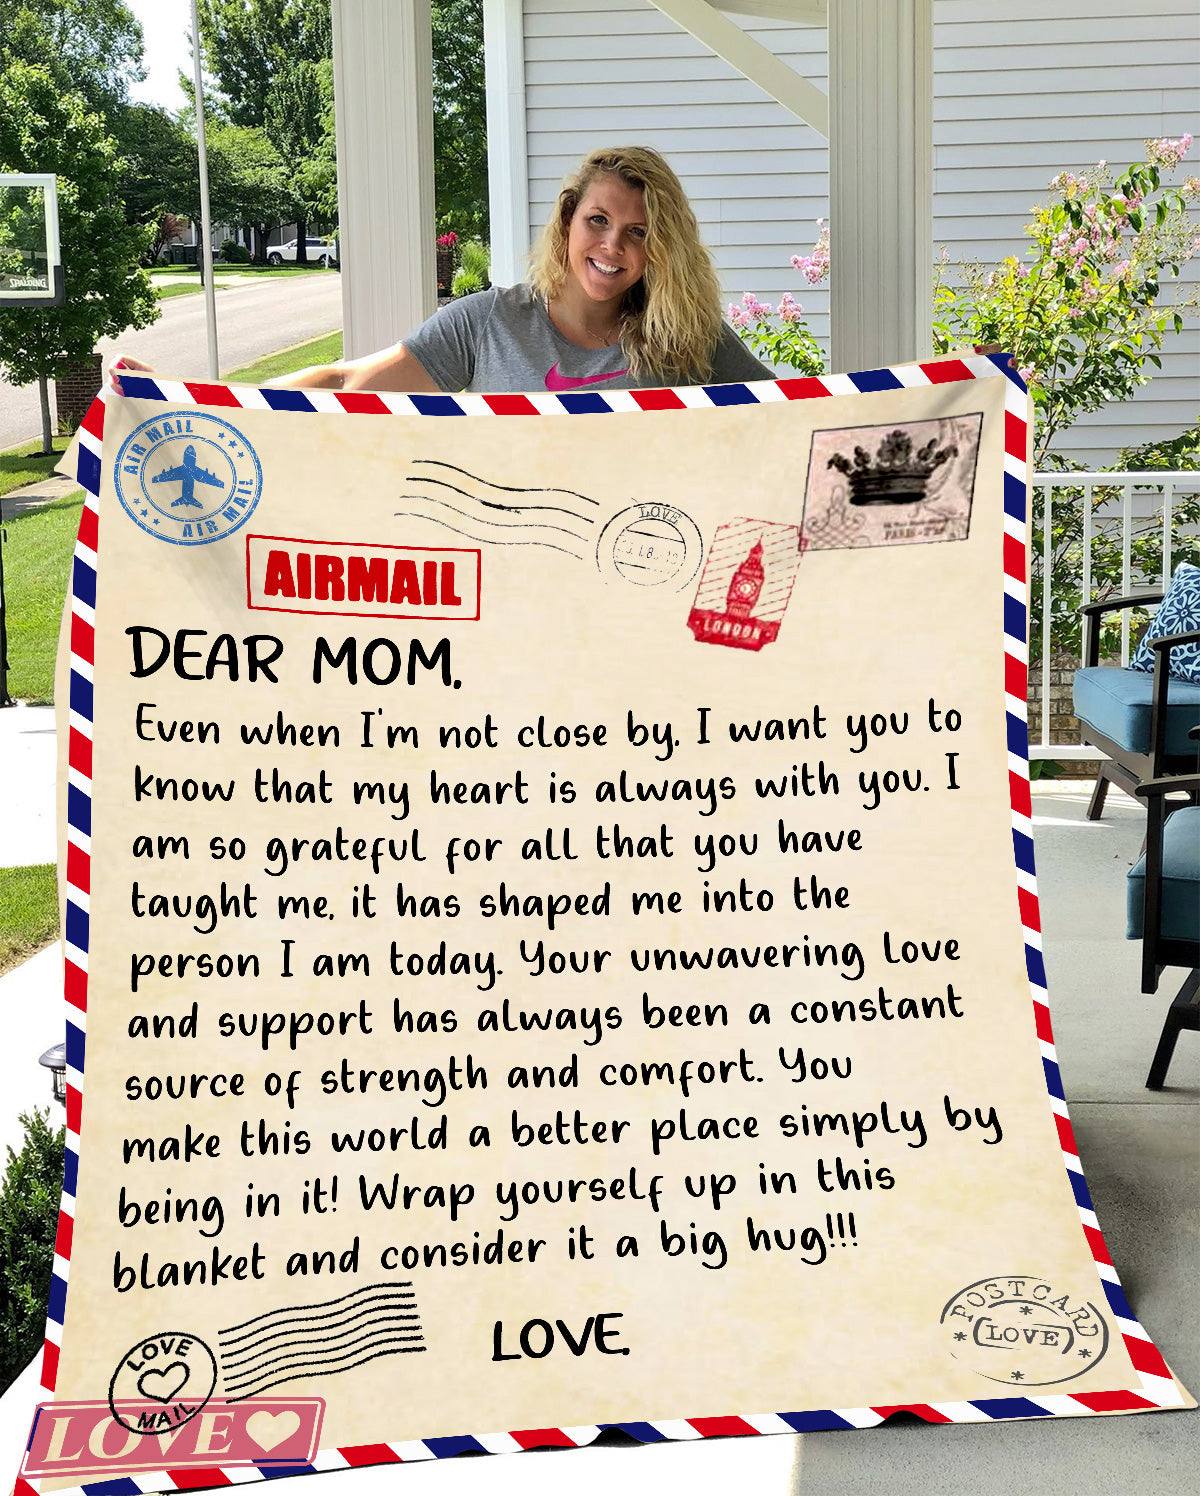 SPALDING
AIR MAIL
AIR MAIL
LOVE
PARIS
AIRMAIL
LONDON
DEAR MOM,
Even when I'm not close by, I want you to
know that my heart is always with you. I
am so grateful for all that you have
taught me, it has shaped me into the
person I am today. Your unwavering love
and support has always been a constant
source of strength and comfort. You
make this world a better place simply by
being in it! Wrap yourself up in this
blanket and consider it a big hug!!!
LOVE,
POSTCARD
LOVE
LOVE
MAIL
LOVE